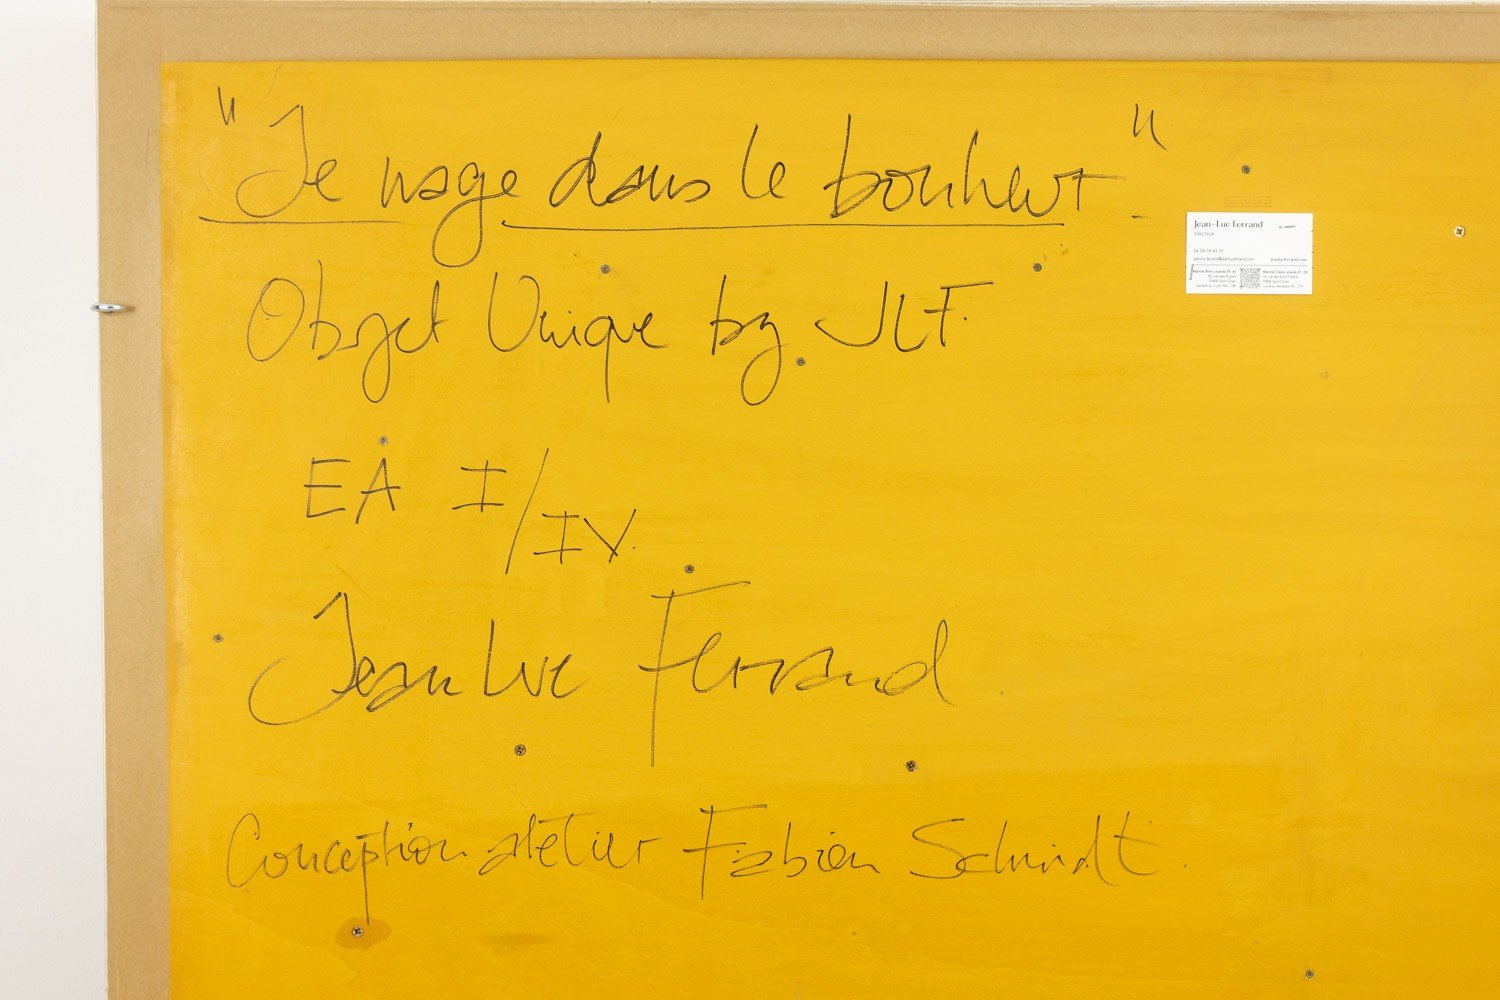 "Je nage dans le bonheur."
Objet Unique by JLF.
EA I/IV.
Jean Luc Ferrand.
Conception atelier Fabien Schmidt.
Jean-Luc Ferrand
DIRECTEUR